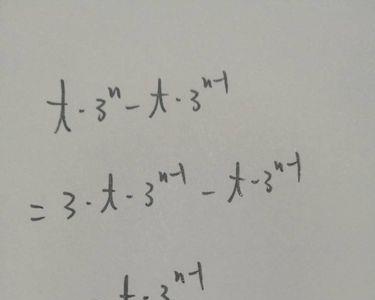 t · 3ⁿ − t · 3ⁿ⁻¹
= 3 · t · 3ⁿ⁻¹ − t · 3ⁿ⁻¹
t · 3ⁿ⁻¹